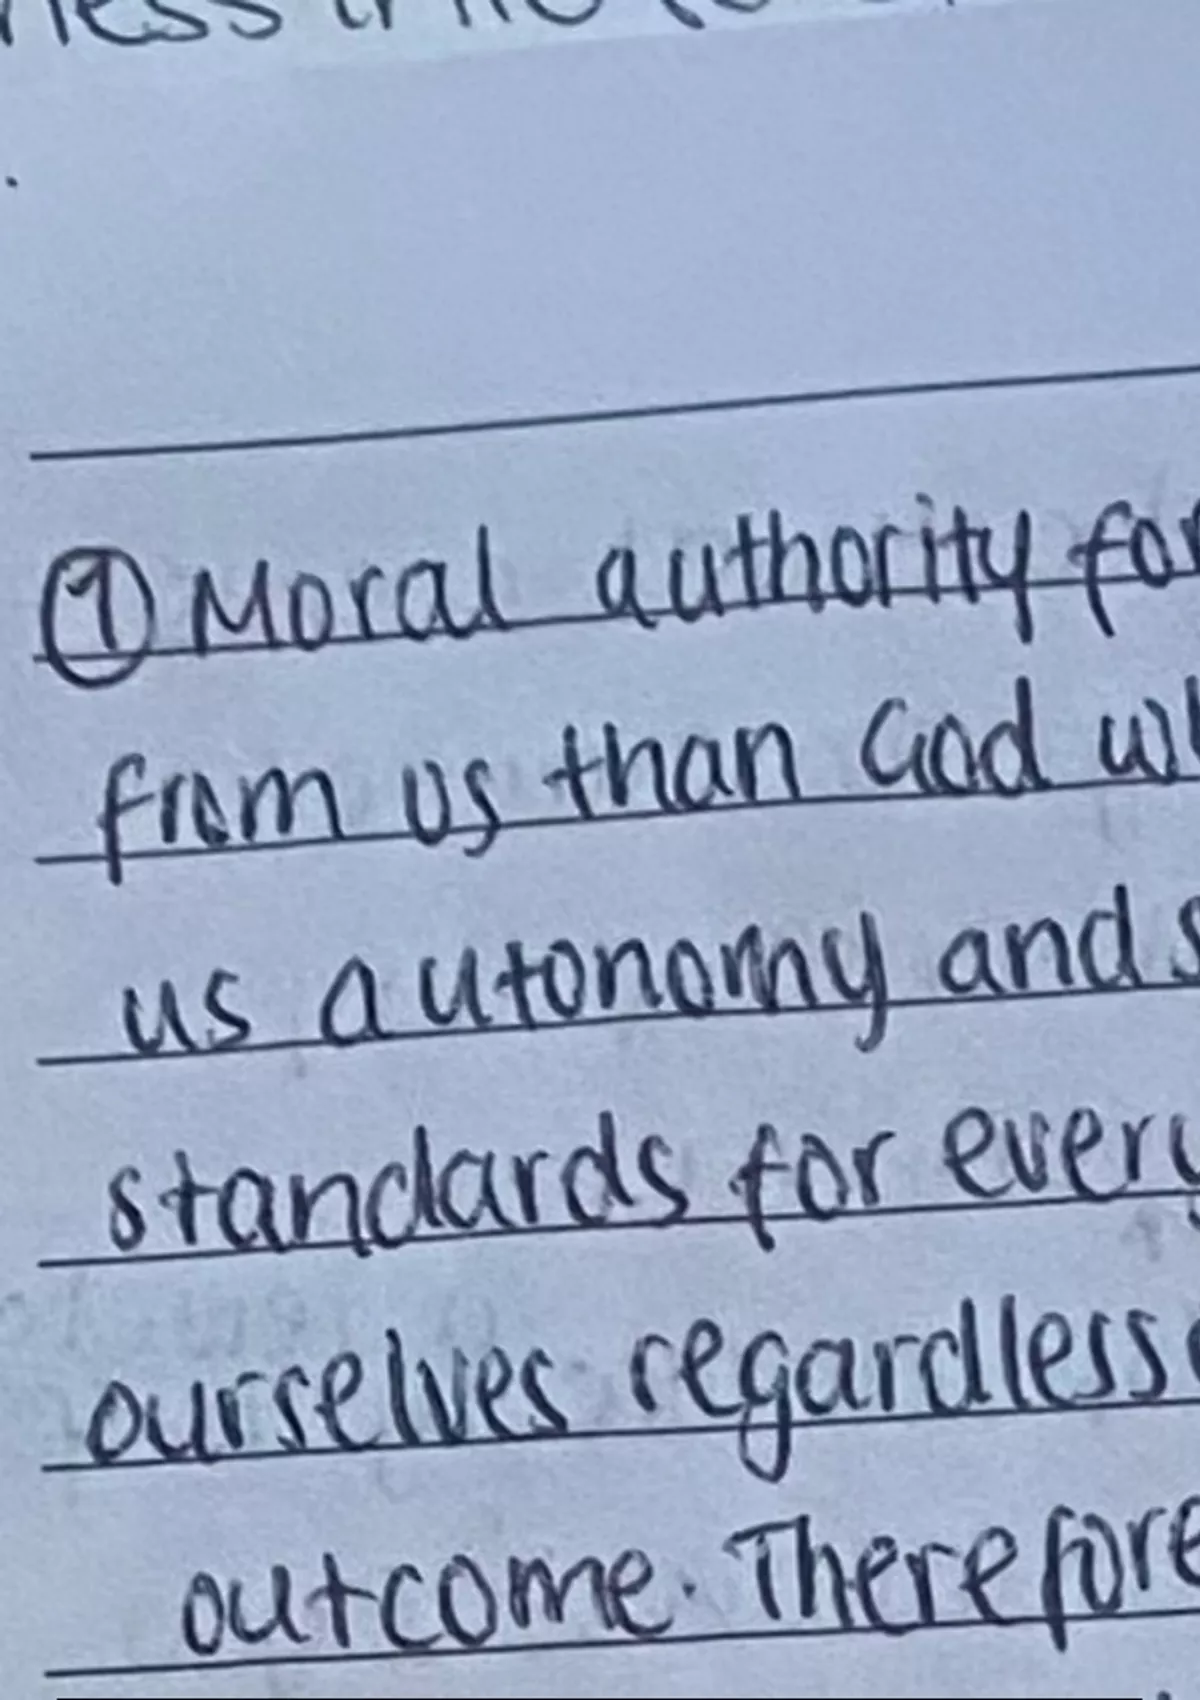 ① Moral authority for
from us than God
us autonomy and
standards for every
ourselves regardless
outcome. Therefore